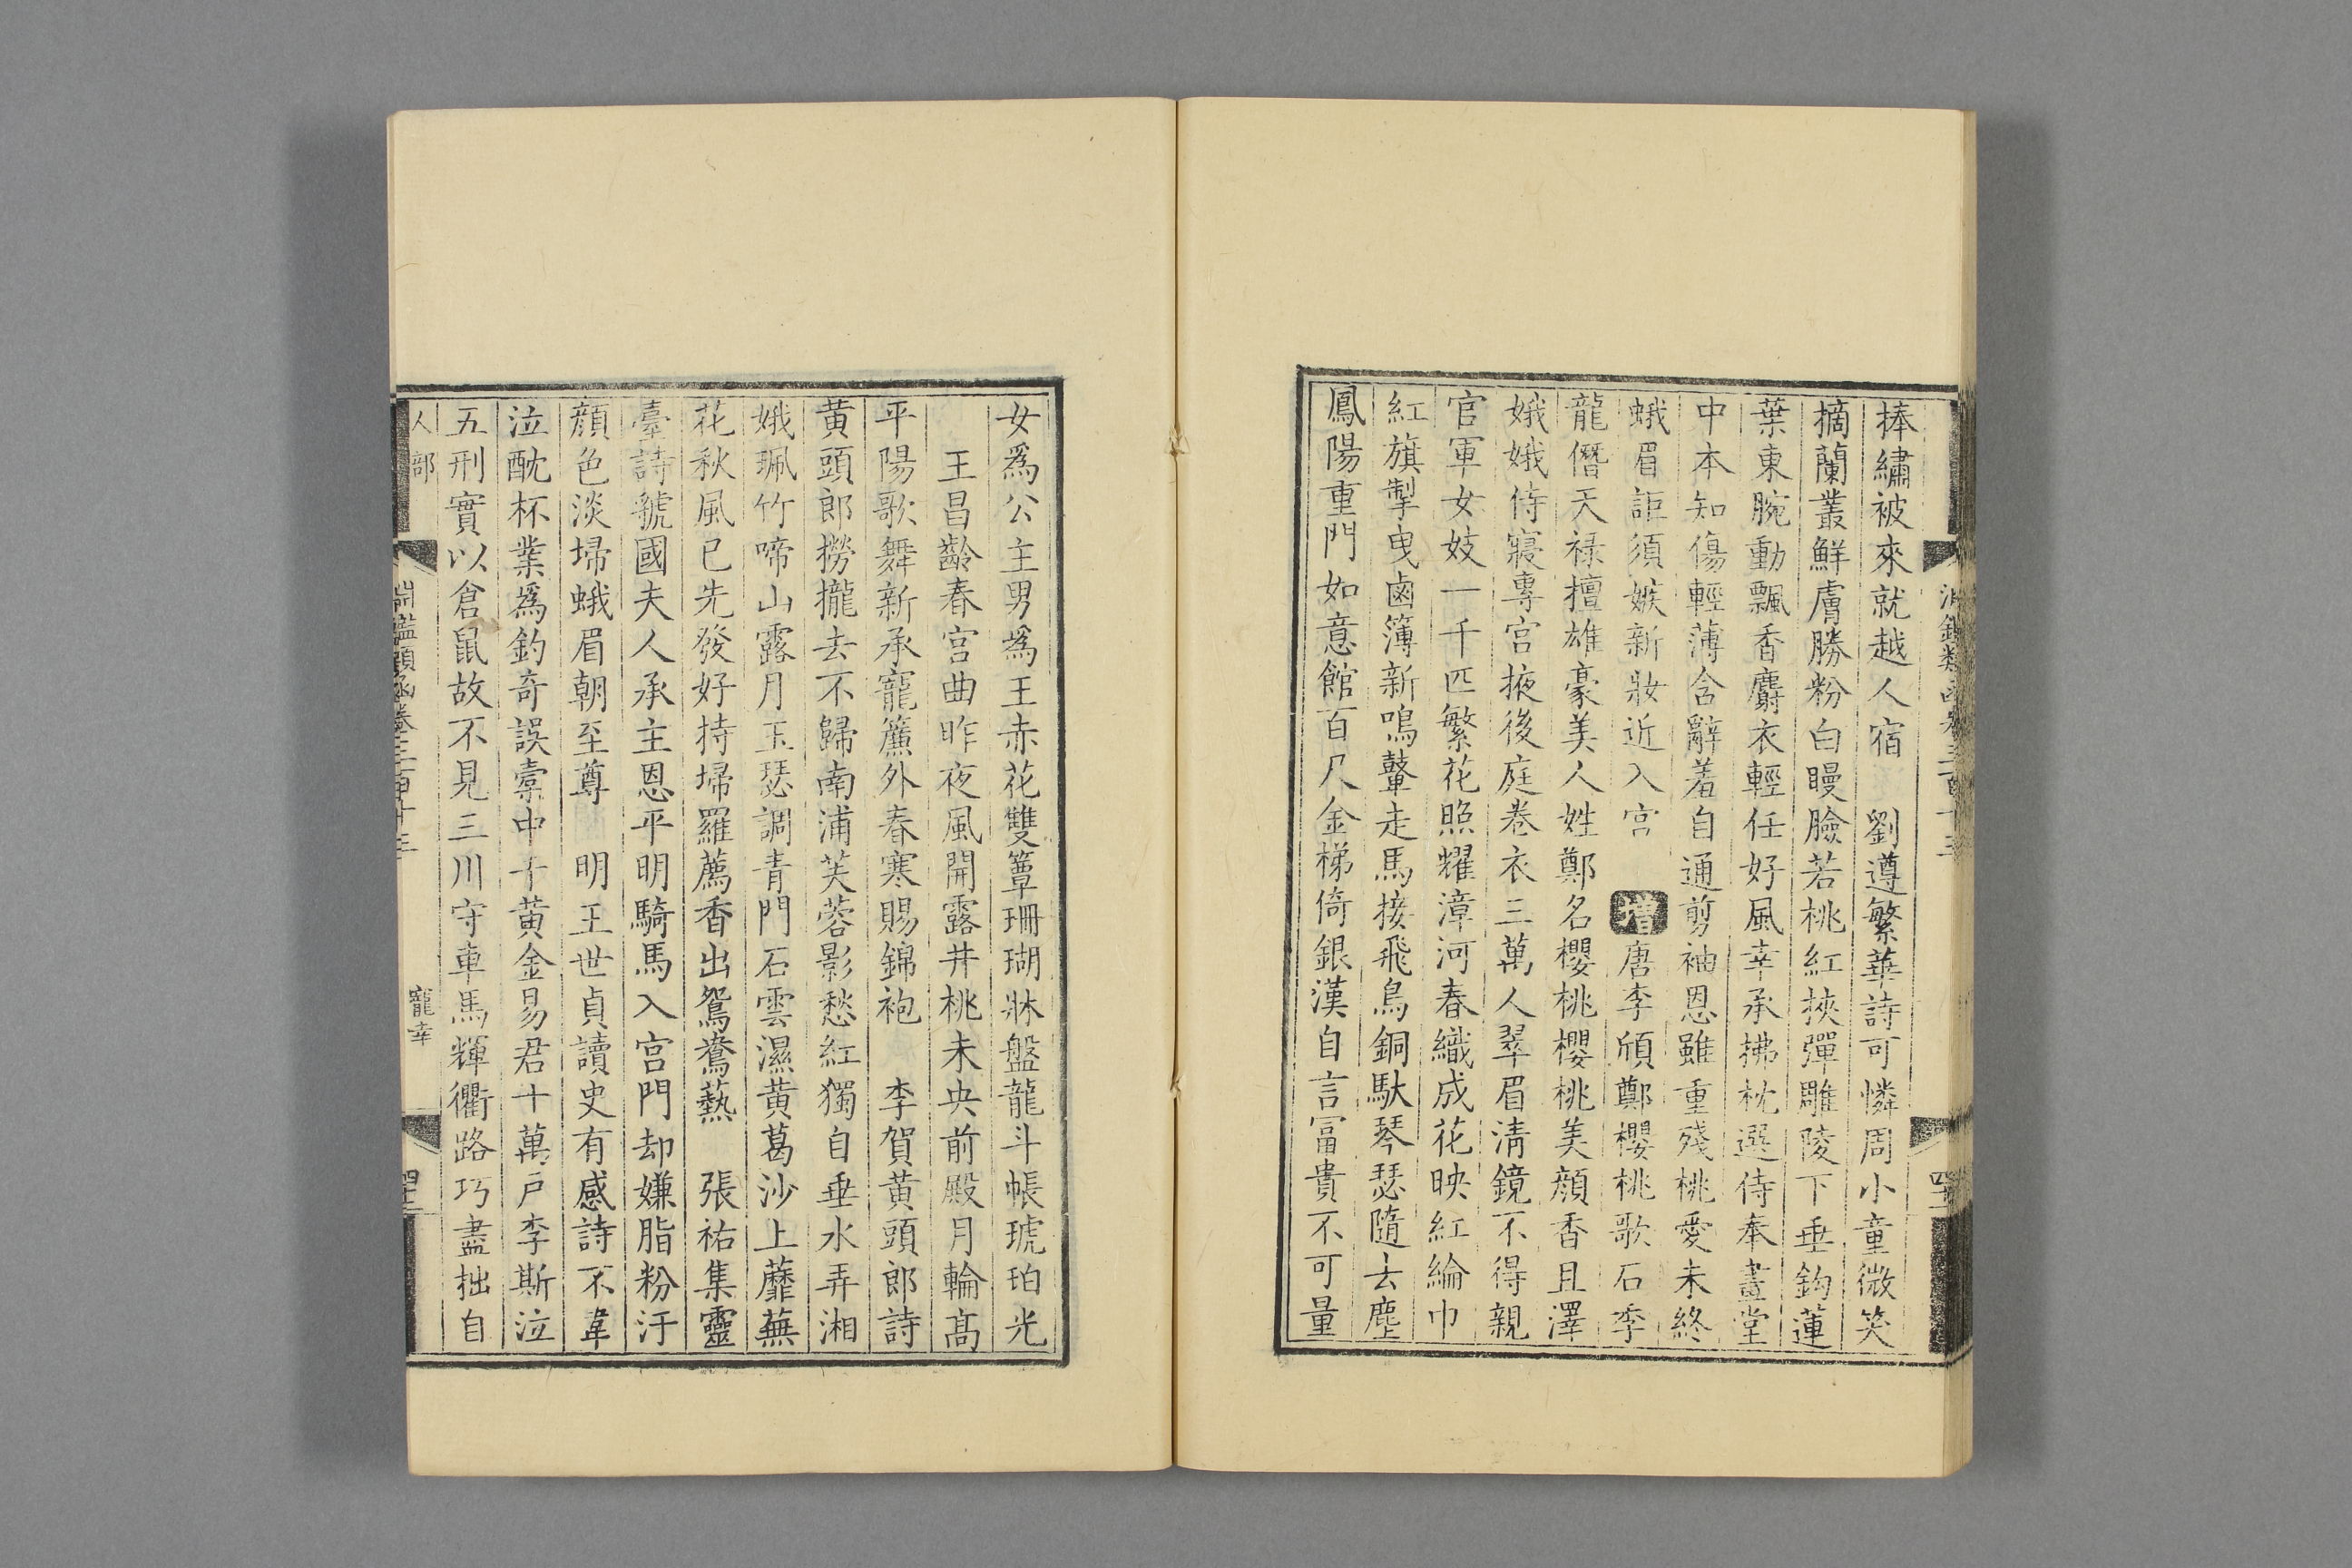 捧繡被來就越人宿　劉遵繁華詩可憐周小童微笑
摘蘭叢鮮膚勝粉白𦢊臉若桃紅挾彈雕陵下垂鈎蓮
葉東腕動飄香麝衣輕任好風幸承拂枕選侍奉畫堂
中本知傷輕薄含辭羞自通剪袖恩雖重殘桃愛未終
蛾眉詎須嫉新妝近入宮　增唐李頎鄭櫻桃歌石季
龍僭天祿擅雄豪美人姓鄭名櫻桃櫻桃美顔香且澤
娥娥侍寢專宮掖後庭卷衣三萬人翠眉清鏡不得親
官軍女妓一千匹繁花照耀漳河春織成花映紅綸巾
紅旗掣曳鹵簿新鳴鼙走馬接飛鳥銅馱琴瑟隨去塵
鳳陽重門如意館百尺金梯倚銀漢自言富貴不可量
女爲公主男爲王赤花雙簟珊瑚牀盤龍斗帳琥珀光
王昌齡春宮曲昨夜風開露井桃未央前殿月輪高
平陽歌舞新承寵簾外春寒賜錦袍　李賀黃頭郎詩
黃頭郎撈攏去不歸南浦芙蓉影愁紅獨自垂水弄湘
娥珮竹啼山露月玉瑟調青門石雲濕黃葛沙上蘼蕪
花秋風已先發好持埽羅薦香出鴛鴦熱　張祐集靈
臺詩虢國夫人承主恩平明騎馬入宮門却嫌脂粉汙
顔色淡埽蛾眉朝至尊　明王世貞讀史有感詩不韋
泣酖杯業爲釣奇誤橐中千黃金易君十萬戶李斯泣
五刑實以倉鼠故不見三川守車馬輝衢路巧盡拙自
人部　淵鑑類函卷三百十三　寵幸